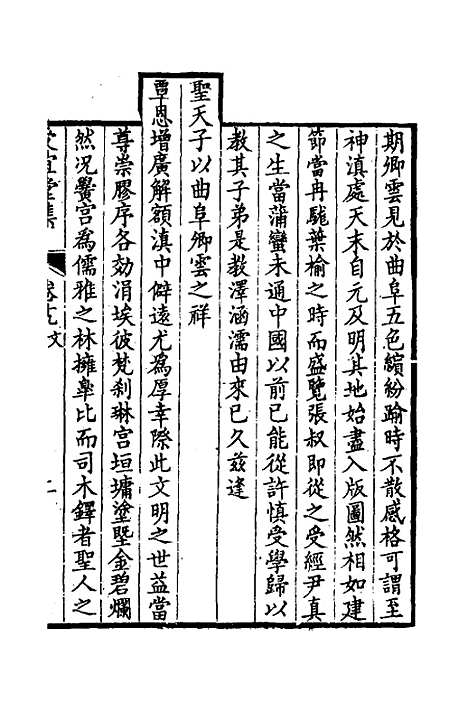 期卿雲見於曲阜五色繽紛踰時不散感格可謂至
神滇處天末自元及明其地始盡入版圖然相如建
節當冉駹葉榆之時而盛覽張叔即從之受經尹真
之生當蒲蠻未通中國以前已能從許慎受學歸以
教其子弟是教澤涵濡由來已久茲逢
聖天子以曲阜卿雲之祥
覃恩增廣解額滇中僻遠尤爲厚幸際此文明之世益當
尊崇膠序各効涓埃彼梵刹琳宮垣墉塗塈金碧爛
然况黌宮爲儒雅之林擁皋比而司木鐸者聖人之